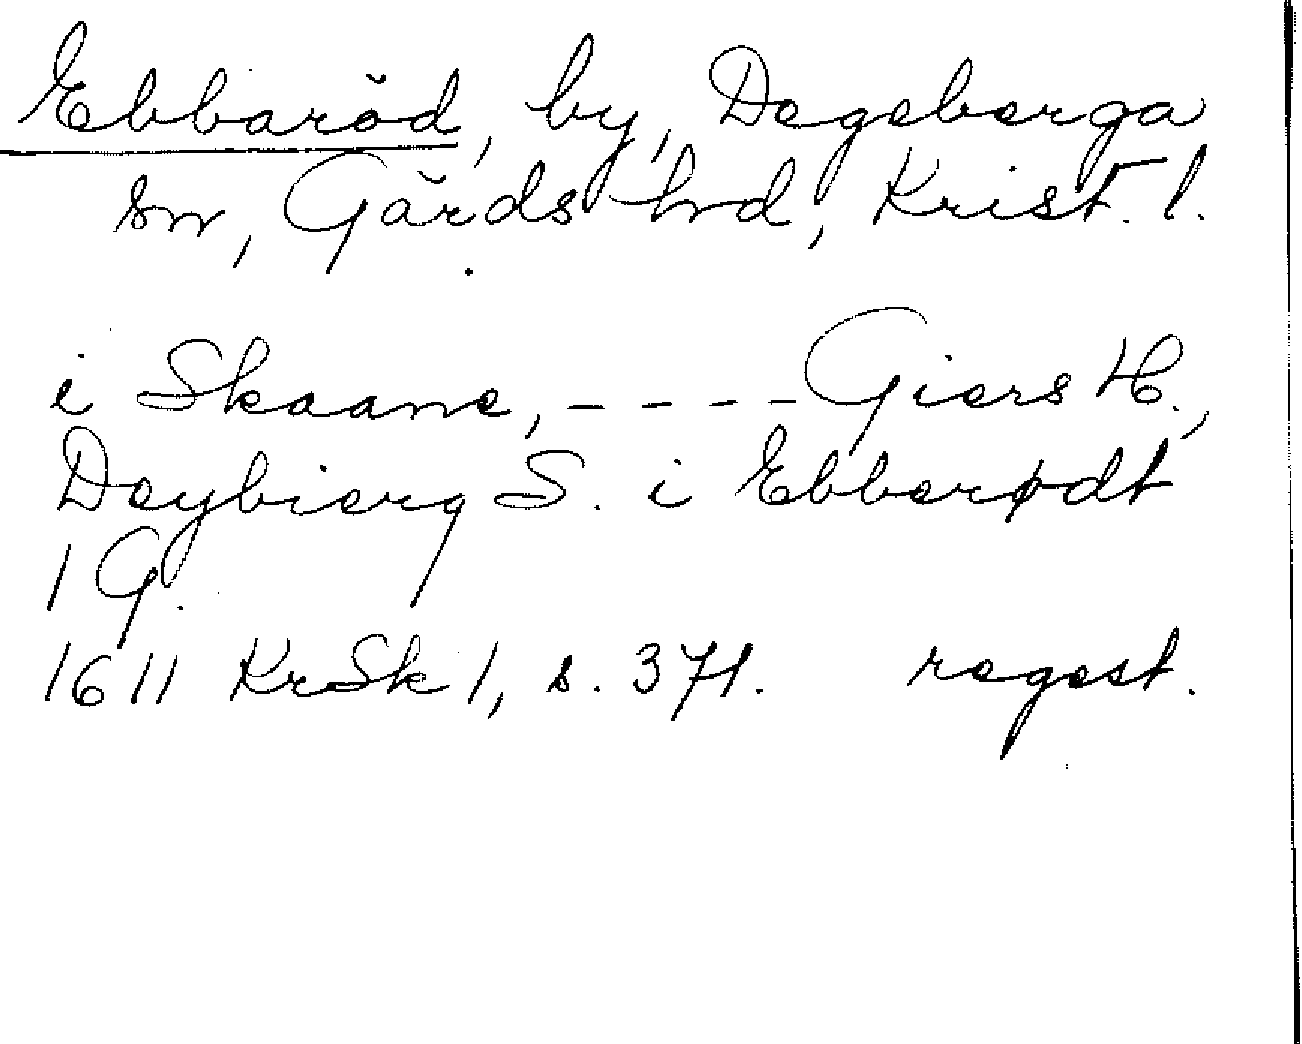 Ebbaröd, by, Degeberga
sn, Gärds hrd, Krist. l.
i Skaane, - - - - Giers H.,
Deybierg S. i Ebberødt
1 G.
1611 KrSk 1, s. 371. regest.